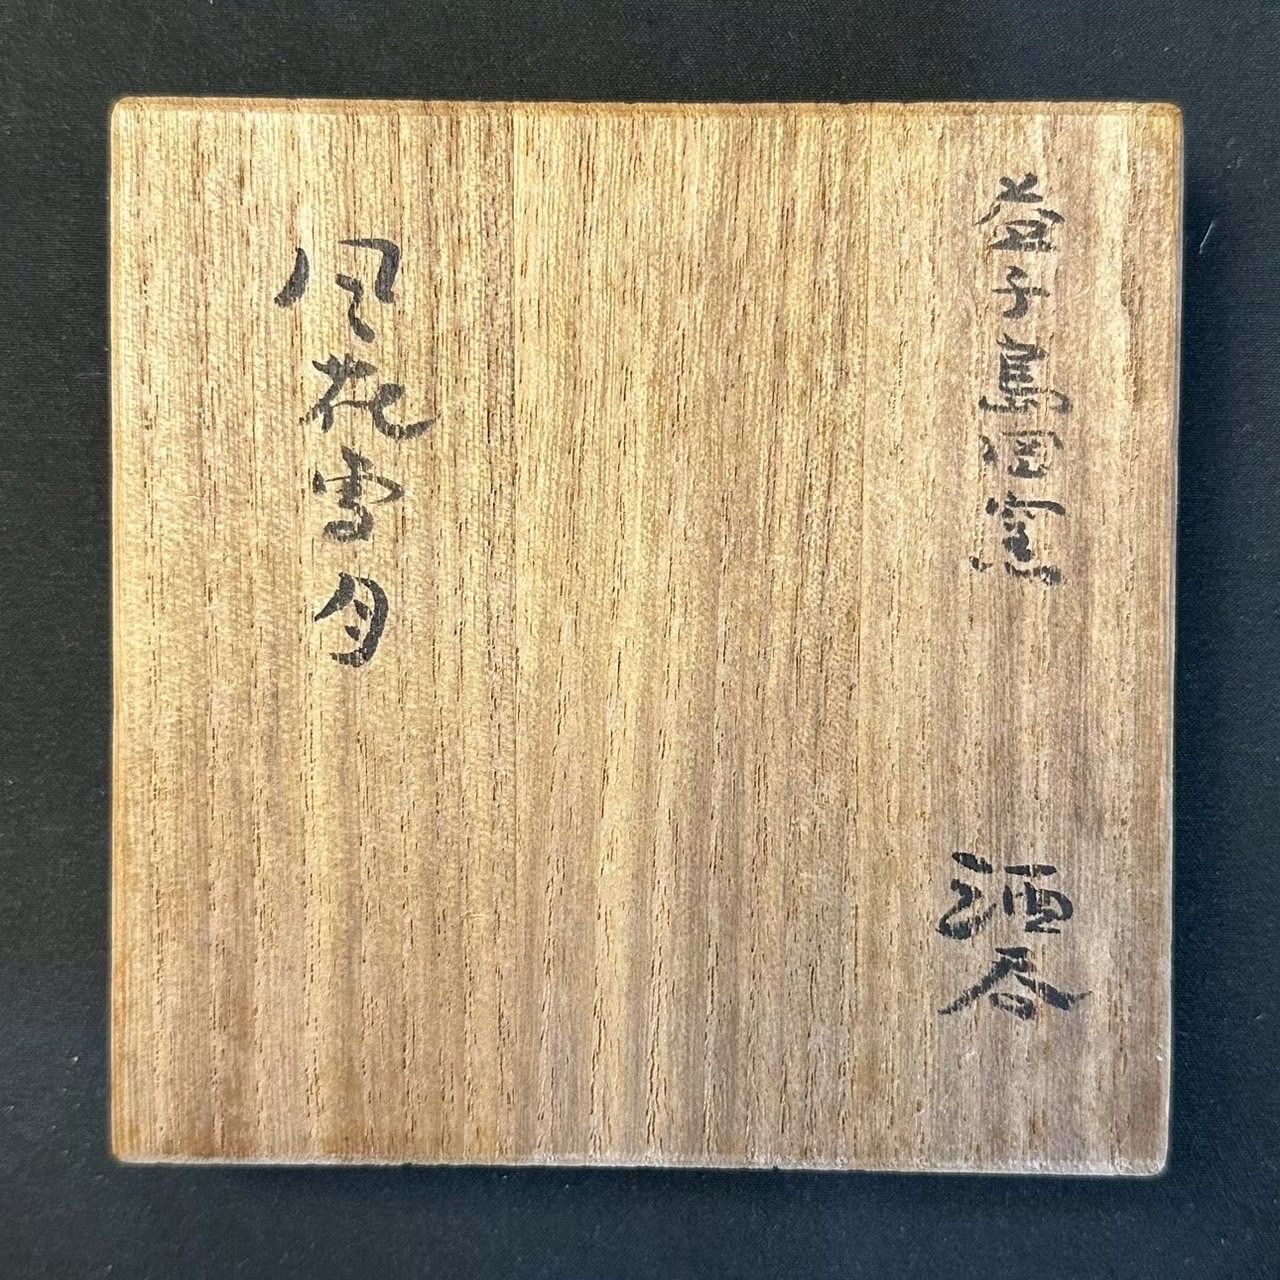 益子島岡窯
酒呑
風花雪月